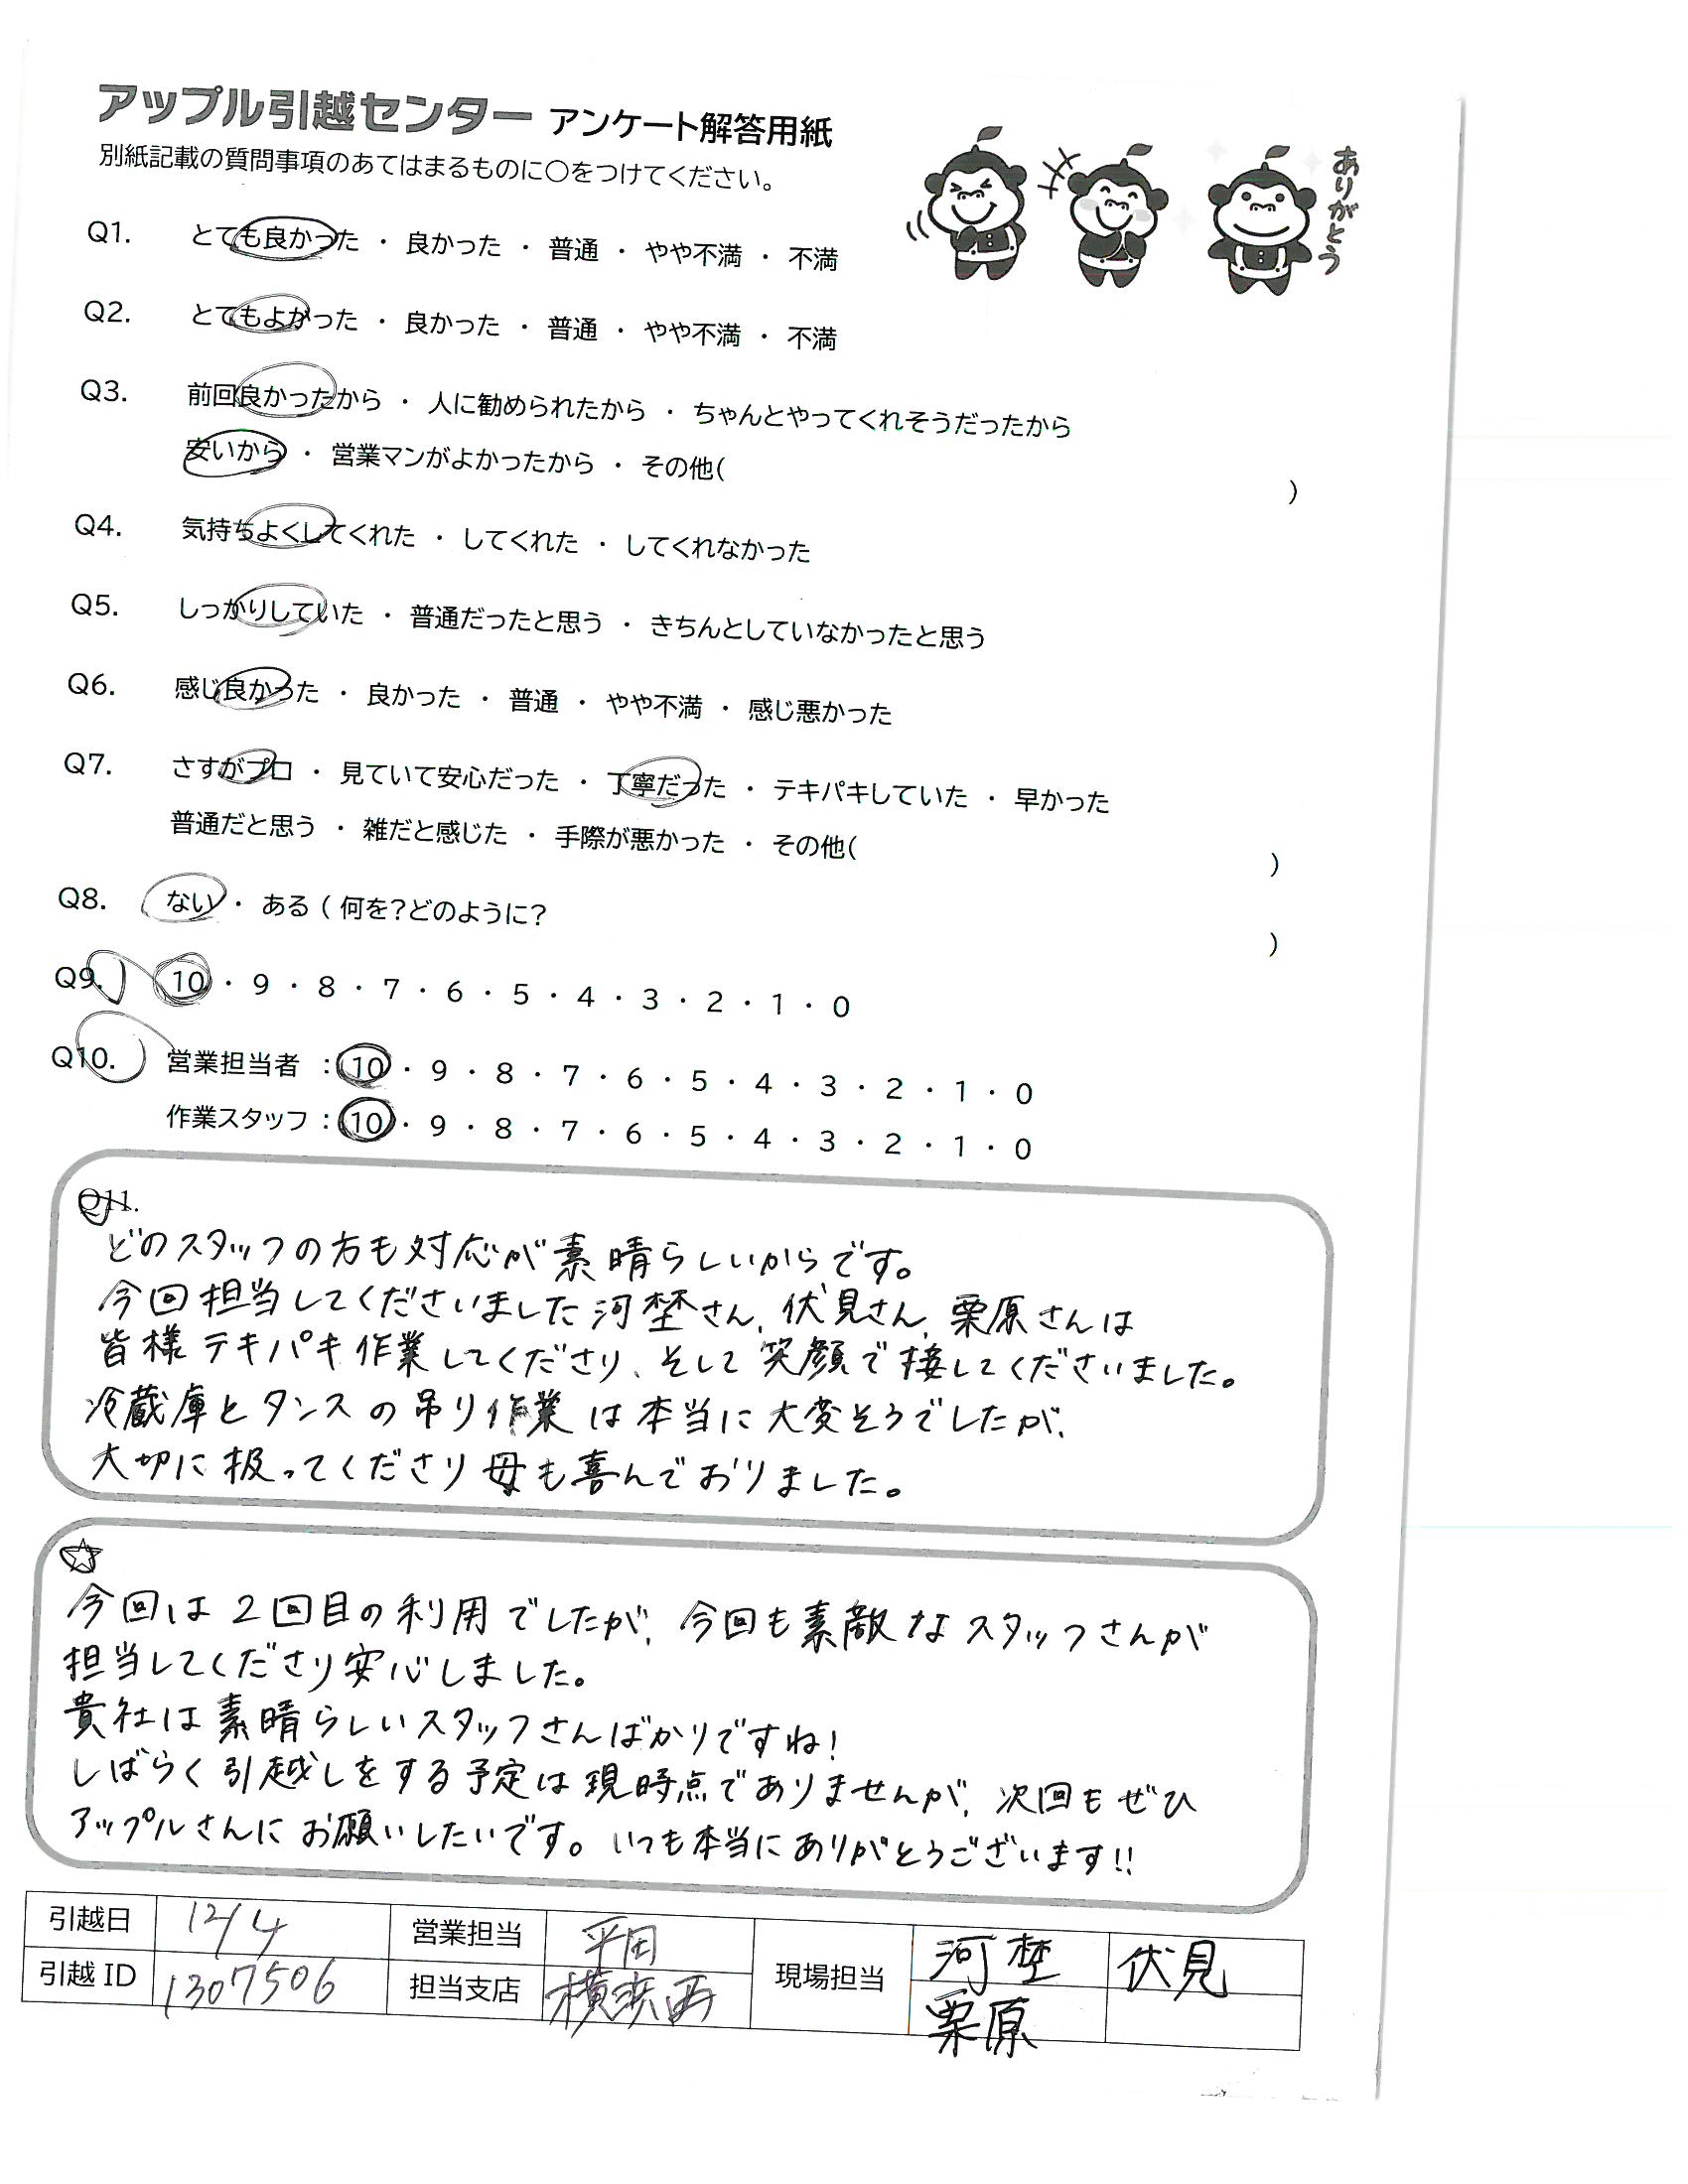 アップル引越センター アンケート解答用紙
別紙記載の質問事項のあてはまるものに○をつけてください。
ありがとう
Q1. とても良かった ・ 良かった ・ 普通 ・ やや不満 ・ 不満
Q2. とてもよかった ・ 良かった ・ 普通 ・ やや不満 ・ 不満
Q3. 前回良かったから ・ 人に勧められたから ・ ちゃんとやってくれそうだったから
安いから ・ 営業マンがよかったから ・ その他( )
Q4. 気持ちよくしてくれた ・ してくれた ・ してくれなかった
Q5. しっかりしていた ・ 普通だったと思う ・ きちんとしていなかったと思う
Q6. 感じ良かった ・ 良かった ・ 普通 ・ やや不満 ・ 感じ悪かった
Q7. さすがプロ ・ 見ていて安心だった ・ 丁寧だった ・ テキパキしていた ・ 早かった
普通だと思う ・ 雑だと感じた ・ 手際が悪かった ・ その他( )
Q8. ない ・ ある ( 何を?どのように? )
Q9. 10 ・ 9 ・ 8 ・ 7 ・ 6 ・ 5 ・ 4 ・ 3 ・ 2 ・ 1 ・ 0
Q10. 営業担当者 : 10 ・ 9 ・ 8 ・ 7 ・ 6 ・ 5 ・ 4 ・ 3 ・ 2 ・ 1 ・ 0
作業スタッフ : 10 ・ 9 ・ 8 ・ 7 ・ 6 ・ 5 ・ 4 ・ 3 ・ 2 ・ 1 ・ 0
Q11.
どのスタッフの方も対応が素晴らしいからです。
今回担当してくださいました河埜さん、伏見さん、栗原さんは
皆様テキパキ作業してくださり、そして笑顔で接してくださいました。
冷蔵庫とタンスの吊り作業は本当に大変そうでしたが、
大切に扱ってくださり母も喜んでおりました。
☆
今回は2回目の利用でしたが、今回も素敵なスタッフさんが
担当してくださり安心しました。
貴社は素晴らしいスタッフさんばかりですね!
しばらく引越しをする予定は現時点でありませんが、次回もぜひ
アップルさんにお願いしたいです。いつも本当にありがとうございます!!
引越日 12/4 営業担当 平田 現場担当 河埜 伏見
引越ID 1307506 担当支店 横浜西 栗原